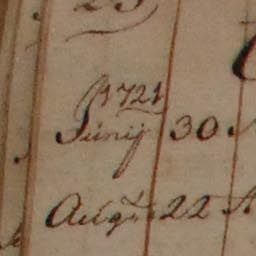 25
1721
Junij 30
Augt. 22